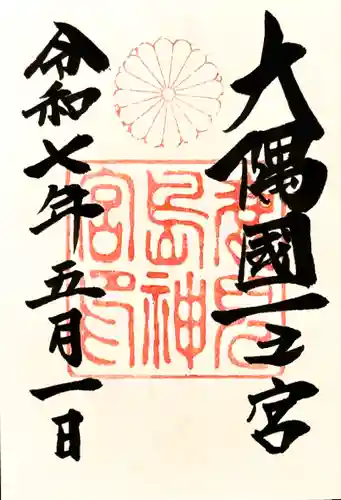 大隅國一之宮
鹿兒島神宮印
令和七年五月一日